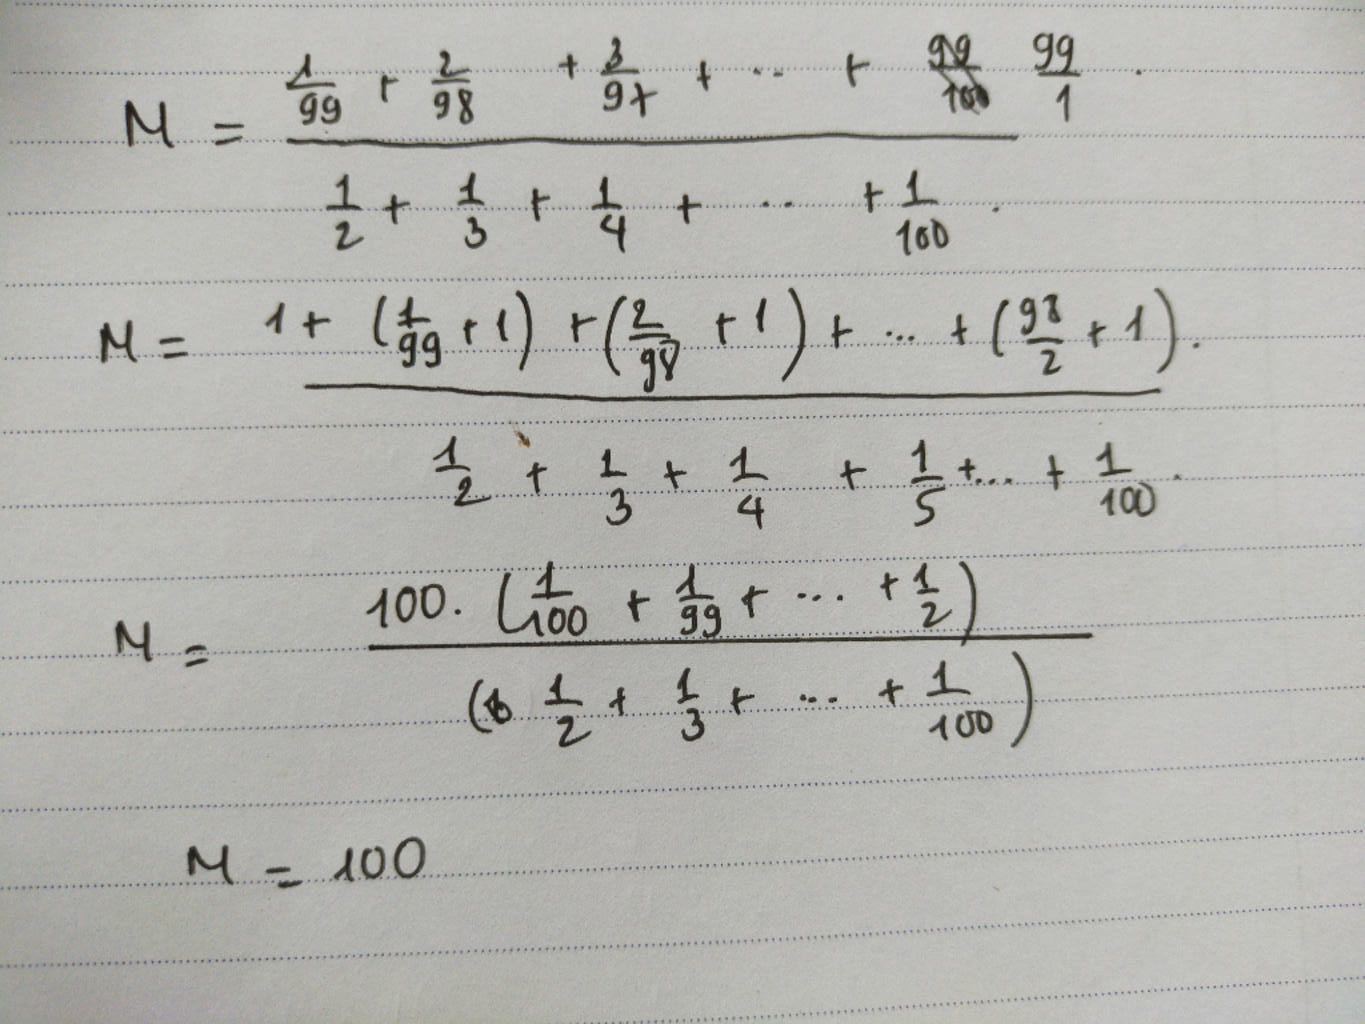 M = (1/99 + 2/98 + 3/97 + .. + 99/1) / (1/2 + 1/3 + 1/4 + .. + 1/100).
M = (1 + (1/99 + 1) + (2/98 + 1) + ... + (98/2 + 1)) / (1/2 + 1/3 + 1/4 + 1/5 + ... + 1/100).
M = 100. (1/100 + 1/99 + ... + 1/2) / (1/2 + 1/3 + ... + 1/100)
M = 100